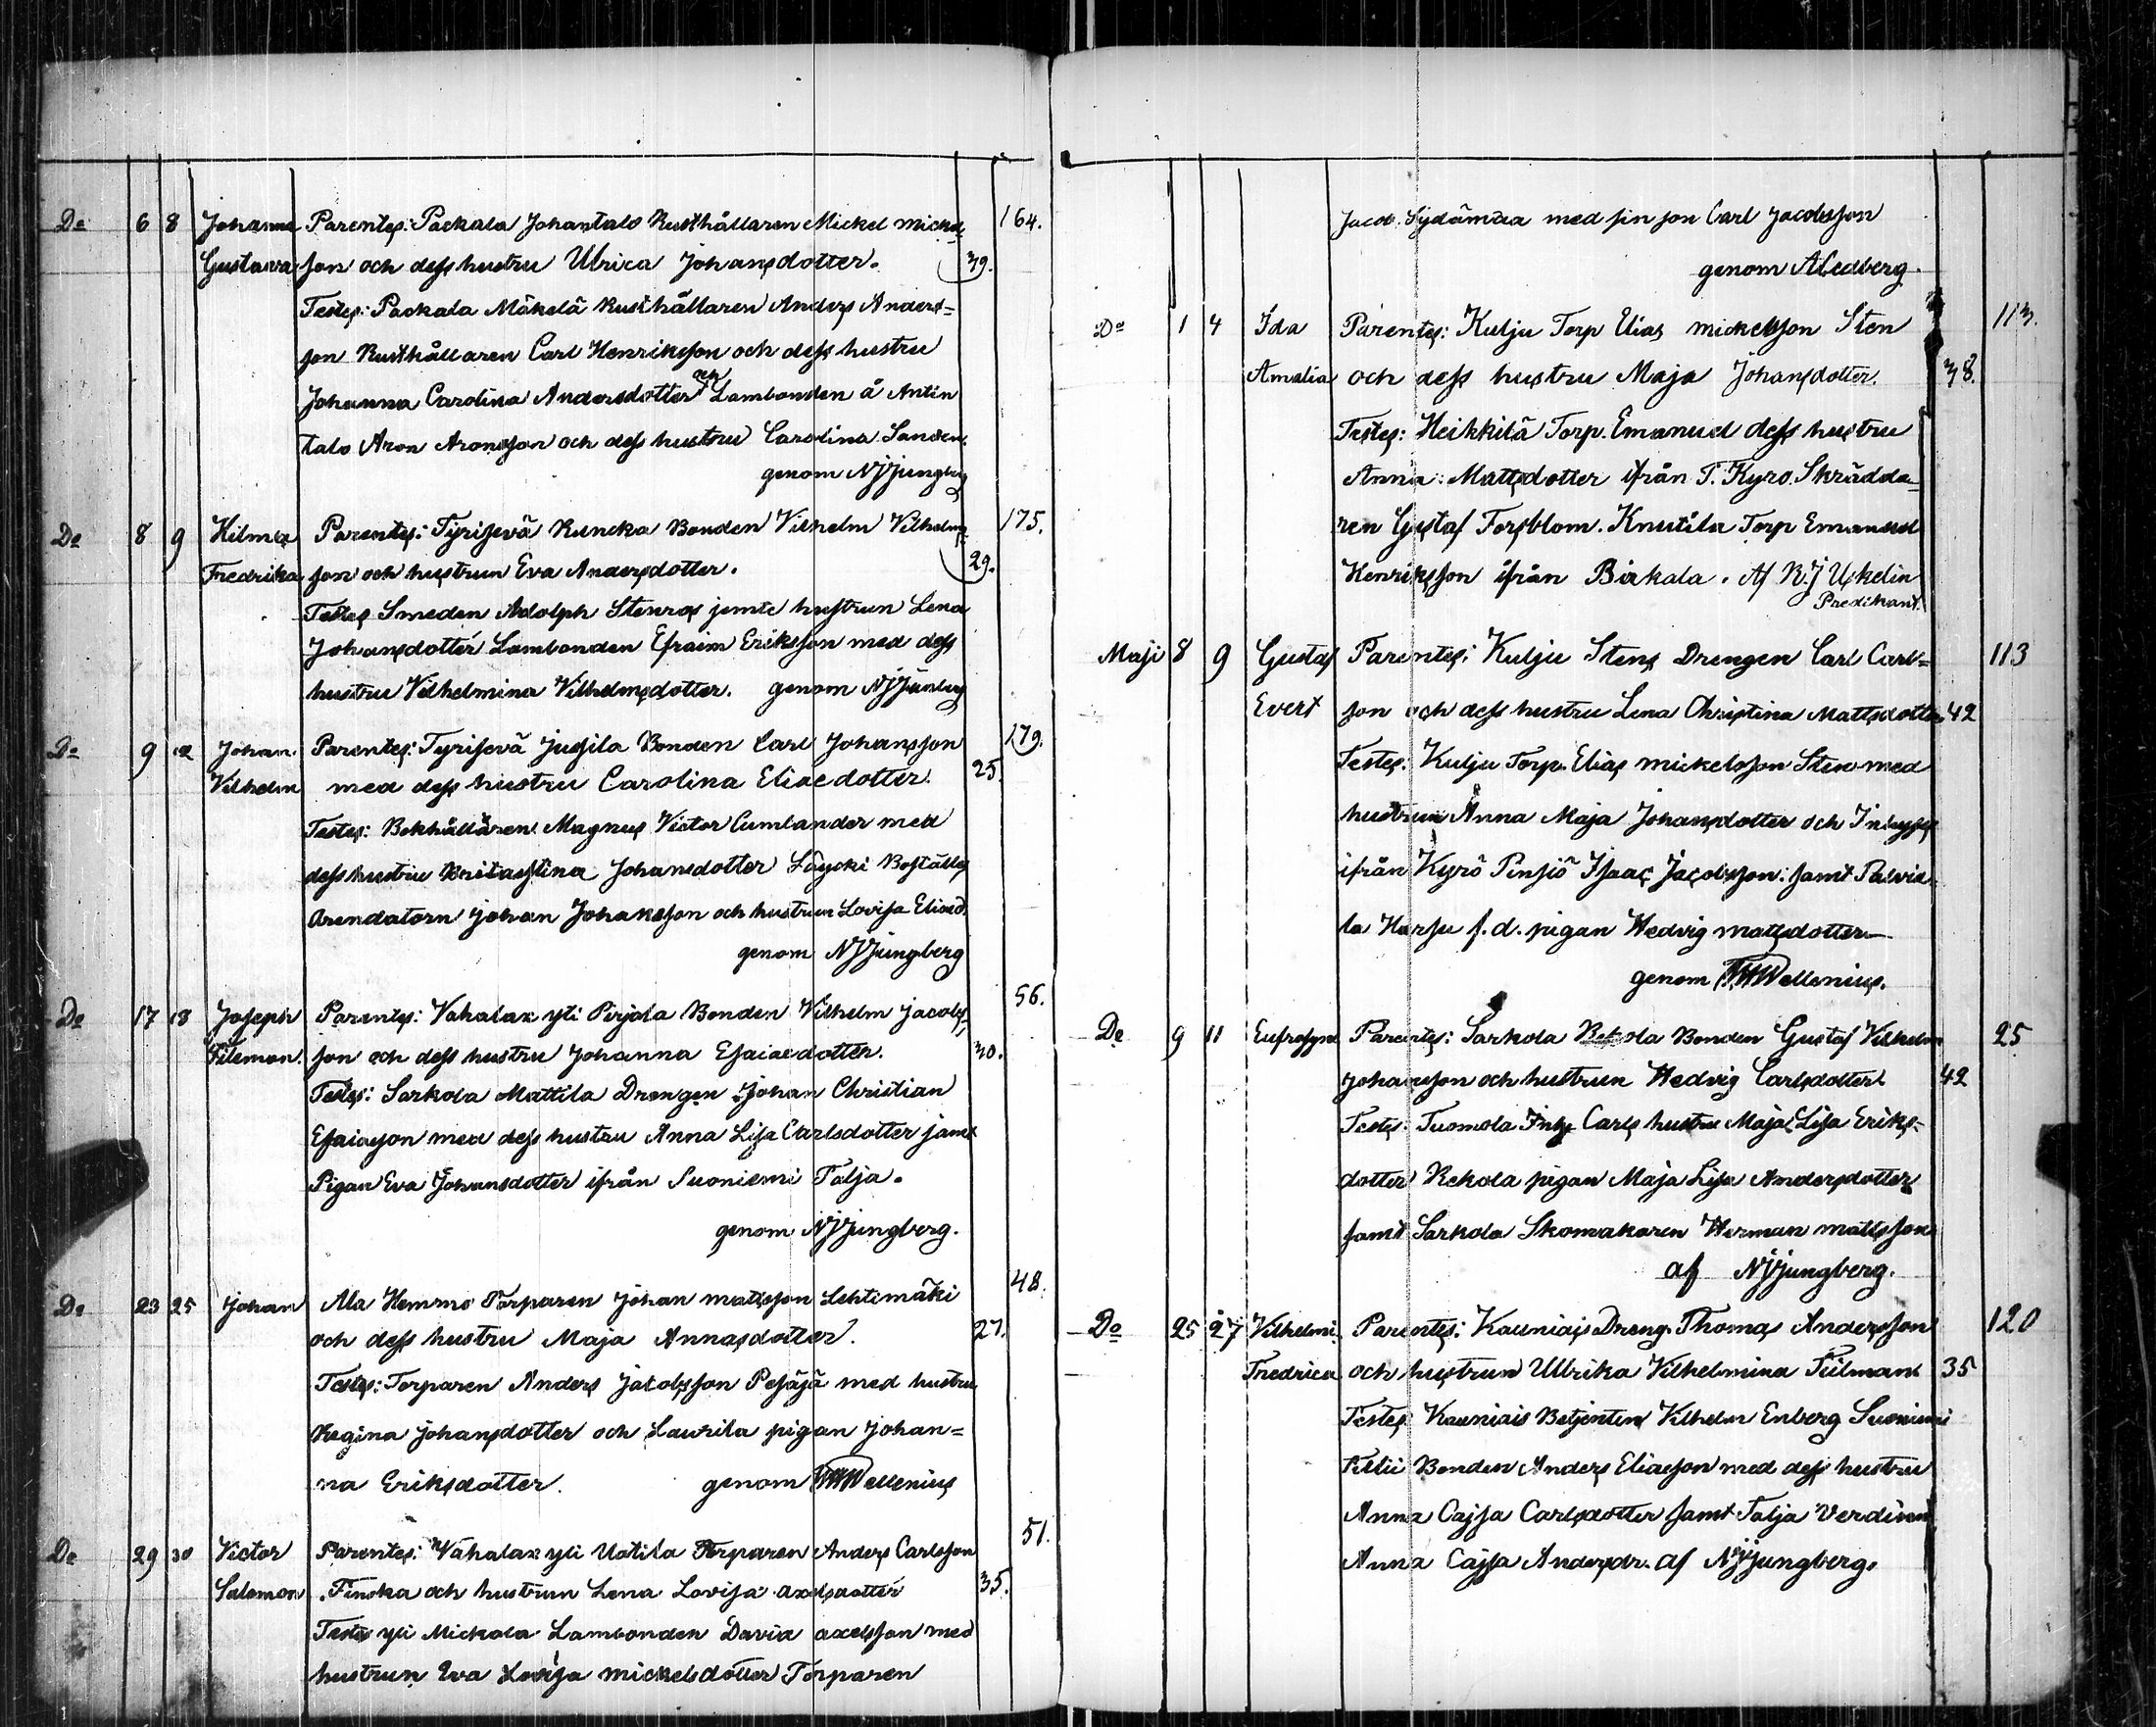 Do 6 8 Johanna Parentes: Packala Johantalo Rusthållaren Mickel Mickel= 164.
Gustava son och dess hustru Ulrica Johansdotter. 39.
Testes: Packala Mäkelä Rusthållaren Anders Anders=
son Rusthållaren Carl Henriksson och dess hustru
Johanna Carolina Andersdotter och Lambonden å Antin
talo Aron Aronsson och dess hustru Carolina
genom NJjungberg
Do 8 9 Hilma Parentes: Tyrisevä Runcka Bonden Vilhelm Vilhelms= 175.
Fredrika son och hustrun Eva Andersdotter. 29.
Testes Smeden Adolph Stenros jemte hustrun Lena
Johansdotter Lambonden Efraim Eriksson med dess
hustru Vilhelmina Vilhelmsdotter. genom NJjungberg
Do 9 12 Johan Parentes: Tyrisevä Jussila Bonden Carl Johansson 179.
Vilhelm med dess hustru Carolina Eliaedotter. 25.
Testes: Bokhållaren Magnus Victor Cumlander med
dess hustru Britastina Johansdotter Låycki Boställs
Arendatorn Johan Johansson och hustrun Lovisa Eliaed.
genom NJjungberg
Do 17 18 Joseph Parentes: Vahalax yli Pirjola Bonden Vilhelm Jacobs 56.
Filemon. son och dess hustru Johanna Esaiaedotter. 30.
Testes: Sarkola Mattila Drengen Johan Christian
Esaiason med dess hustru Anna Lisa Carlsdotter jamt
Pigan Eva Johansdotter ifrån Suoniemi Talja.
genom NJjungberg.
Do 23 25 Johan Ala Hemmo Torparen Johan Matsson Lehtimäki 48.
och dess hustru Maja Annasdotter. 27.
Testes: Torparen Anders Jakobsson Pesäjä med hustru
Regina Johansdotter och Laurila pigan Johan=
na Eriksdotter. genom Wellenius
Do 29 30 Victor Parentes: Vahalax yli Uotila Torparen Anders Carlsson 51.
Salomon Finska och hustrun Lena Lovisa Axelsdotter 35.
Testes yli Mickola Lambonden David Axelsson med
hustrun Eva Lovisa Mickelsdotter Torparen
Jacob Sydämaa med sin son Carl Jacobsson
genom ACedberg.
Do 1 4 Ida Parentes: Kulju Torp Elias Mickelsson Sten 113.
Amalia och dess hustru Maja Johansdotter. 38.
Testes: Heikkilä Torp. Emanuel dess hustru
Anna Mattsdotter ifrån T. Kyro. Skrädda=
ren Gustaf Forsblom. Knutila Torp Emanuel
Henriksson ifrån Birkala. Af R.J Uskelin
Predikant.
Maji 8 9 Gustaf Parentes: Kulju Stens Drengen Carl Carl= 113
Evert son och dess hustru Lena Christina Mattsdotter 42
Testes: Kulju Torp. Elias Mickelsson Sten med
hustrun Anna Maja Johansdotter och Inhyses
ifrån Kyrö Pinsiö Isaac Jacobsson. samt Palvia
la Harju f.d. pigan Hedvig Mattsdotter
genom Wellenius.
Do 9 11 Eufrosyne Parentes: Sarkola Bonden Gustaf Vilhelm 25
Johansson och hustrun Hedvig Carlsdotter 42
Testes: Tuomola Inhs Carls hustru Maja Lisa Eriks=
dotter Rekola pigan Maja Lisa Andersdotter
samt Sarkola Skomakaren Herman Mattsson
af NJjungberg.
Do 25 27 Vilhelmi. Parentes: Kauniais Dreng. Thomas Andersson 120
Fredrica och hustrun Ullrika Vilhelmina Tulman 35
Testes Kauniais Betjenten Vilhelm Enberg Suoniemi
Bonden Anders Eliaeson med dess hustru
Anna Cajsa Carlsdotter samt Talja Verdinn
Anna Cajsa Andersdr. af NJjungberg.